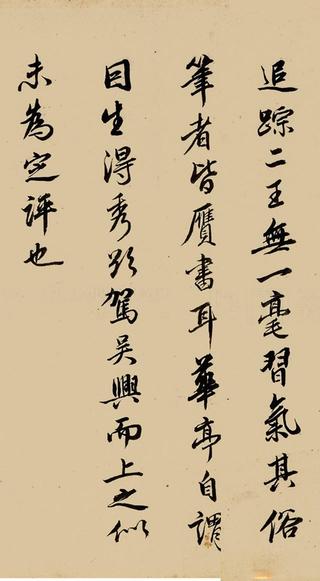 追踪二王無一毫習氣其俗
筆者皆贋書耳華亭自謂
因生得秀欲駕吳興而上之似
未為定評也